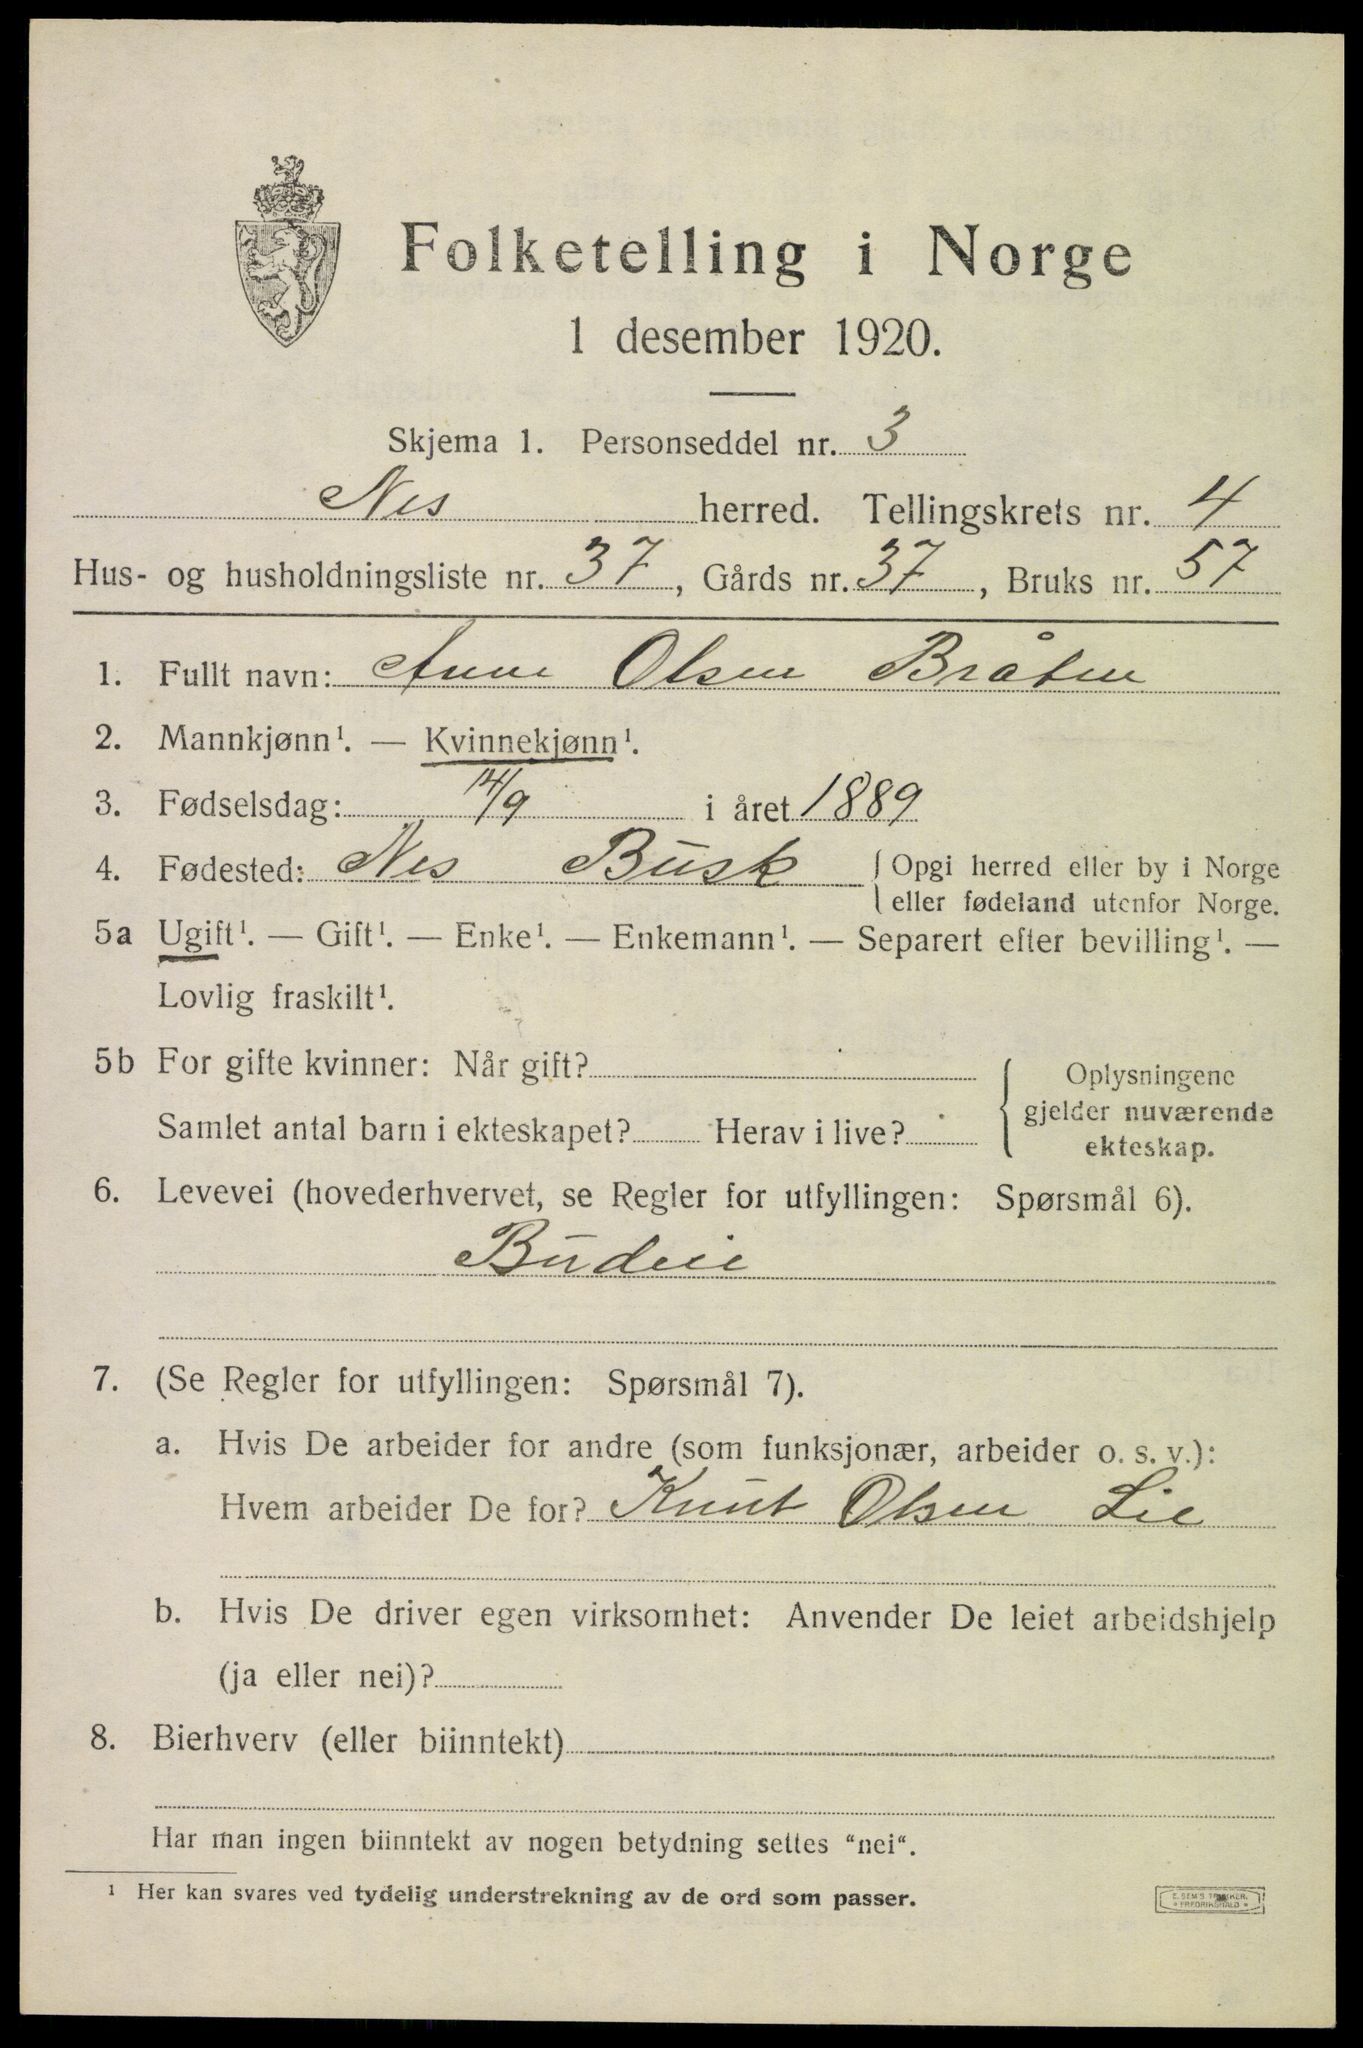 Folketelling i Norge
1 desember 1920.
Skjema 1. Personseddel nr. 3
Nes herred. Tellingskrets nr. 4
Hus- og husholdningsliste nr. 37, Gårds nr. 37, Bruks nr. 57
1. Fullt navn: Anne Olsen Bråten
2. Mannkjønn¹. — Kvinnekjønn¹.
3. Fødselsdag: 14/9 i året 1889
4. Fødested: Nes Busk { Opgi herred eller by i Norge
eller fødeland utenfor Norge.
5a Ugift¹. — Gift¹. — Enke¹. — Enkemann¹. — Separert efter bevilling¹. —
Lovlig fraskilt¹.
5b For gifte kvinner: Når gift?
Samlet antal barn i ekteskapet? Herav i live?
{ Oplysningene
gjelder nuværende
ekteskap.
6. Levevei (hovederhvervet, se Regler for utfyllingen: Spørsmål 6).
Budeie
7. (Se Regler for utfyllingen: Spørsmål 7).
a. Hvis De arbeider for andre (som funksjonær, arbeider o. s. v.):
Hvem arbeider De for? Knut Olsen Lie
b. Hvis De driver egen virksomhet: Anvender De leiet arbeidshjelp
(ja eller nei)?
8. Bierhverv (eller biinntekt)
Har man ingen biinntekt av nogen betydning settes “nei“.
¹ Her kan svares ved tydelig understrekning av de ord som passer.
E. SEM'S TRYKKERI
* FREDRIKSHALD *